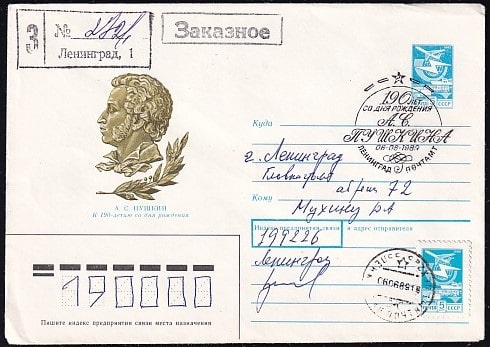 З
№
Ленинград, 1
Заказное
190 ЛЕТ
СО ДНЯ РОЖДЕНИЯ
А.С.
ПУШКИНА
06-06-1989
ЛЕНИНГРАД ПОЧТАМТ
ПОЧТА СССР
А. С. ПУШКИН
К 190-летию со дня рождения
Куда
г. Ленинград
Кому
72
Мухину
Индекс предприятия связи и адрес отправителя
199226
Ленинград
190000
Пишите индекс предприятия связи места назначения
ПОЧТА 5 СССР